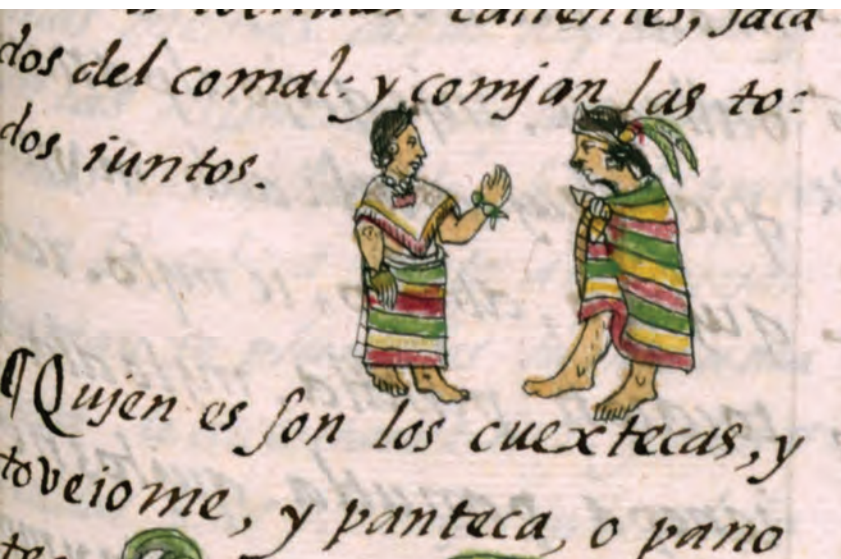 calientes, saca
dos del comal: y comjan las to:
dos juntos.
¶ Qujen es son los cuextecas, y
toveiome, y panteca, o pano
te